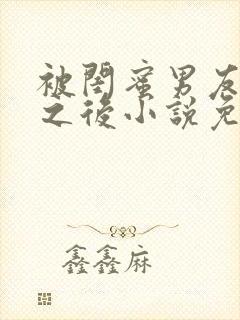 被閨蜜男友
之後小說免
鑫鑫麻